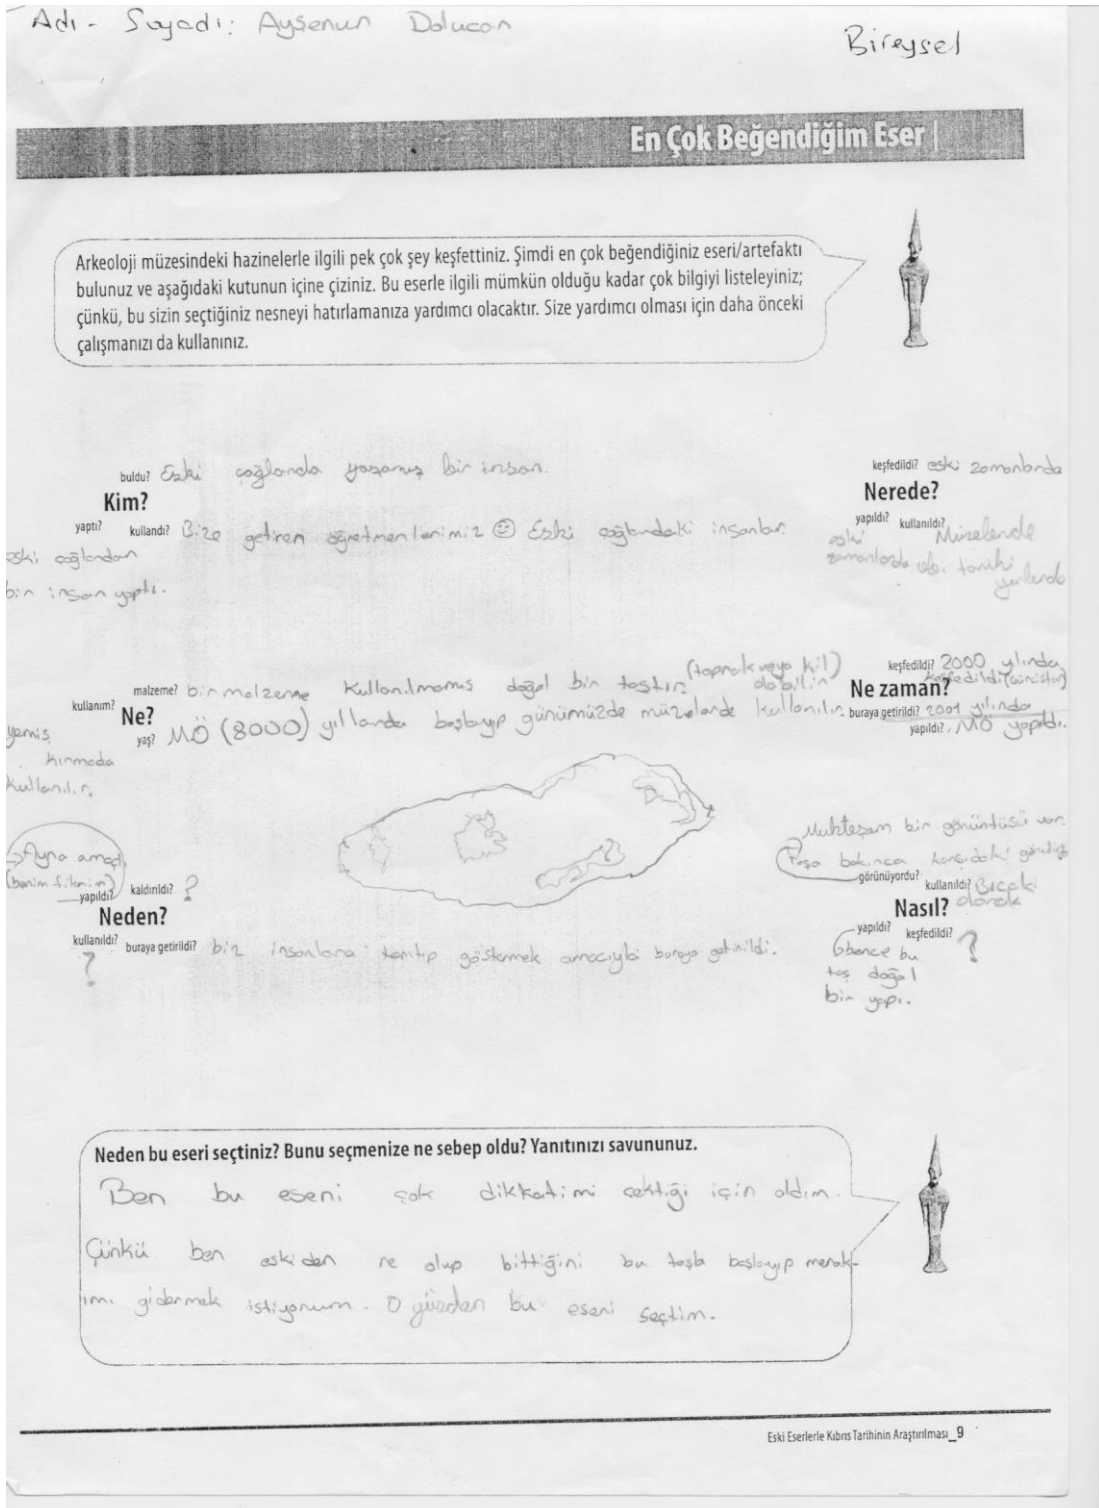 Adı - Soyadı: Ayşenur Dolucan
Bireysel
En Çok Beğendiğim Eser |
Arkeoloji müzesindeki hazinelerle ilgili pek çok şey keşfettiniz. Şimdi en çok beğendiğiniz eseri/artefaktı
bulunuz ve aşağıdaki kutunun içine çiziniz. Bu eserle ilgili mümkün olduğu kadar çok bilgiyi listeleyiniz;
çünkü, bu sizin seçtiğiniz nesneyi hatırlamanıza yardımcı olacaktır. Size yardımcı olması için daha önceki
çalışmanızı da kullanınız.
buldu? Eski çağlarda yaşamış bir insan.
Kim?
yaptı? kullandı? Bize getiren öğretmenlerimiz ☺ Eski çağlardaki insanlar.
eski çağlardan
bir insan yaptı.
keşfedildi? eski zamanlarda
Nerede?
yapıldı? kullanıldı? Müzelerde
eski
zamanlarda vb. tarihi
yerlerde
malzeme? bir malzeme kullanılmamış doğal bir taştır. (toprak veya kil)
olabilir
kullanım?
Ne?
yaş? MÖ (8000) yıllarda başlayıp günümüzde müzelerde kullanılır.
yemiş
kırmada
kullanılır.
keşfedildi? 2000 yılında
keşfedildi
Ne zaman?
buraya getirildi? 2001 yılında
yapıldı? MÖ yapıldı.
→ Ayna amaç
(benim fikrim)
yapıldı? kaldırıldı? ?
Neden?
kullanıldı? buraya getirildi? biz insanlara tanıtıp göstermek amacıyla buraya getirildi.
?
Muhteşem bir görüntüsü var.
Taşa bakınca karşıdaki
görünüyordu?
kullanıldı? Bıçak
olarak
Nasıl?
yapıldı? keşfedildi? ?
bence bu
taş doğal
bir yapı.
Neden bu eseri seçtiniz? Bunu seçmenize ne sebep oldu? Yanıtınızı savununuz.
Ben bu eseri çok dikkatimi çektiği için aldım.
Çünkü ben eskiden ne olup bittiğini bu taşla başlayıp merak-
ımı gidermek istiyorum. O yüzden bu eseri seçtim.
Eski Eserlerle Kıbrıs Tarihinin Araştırılması_9